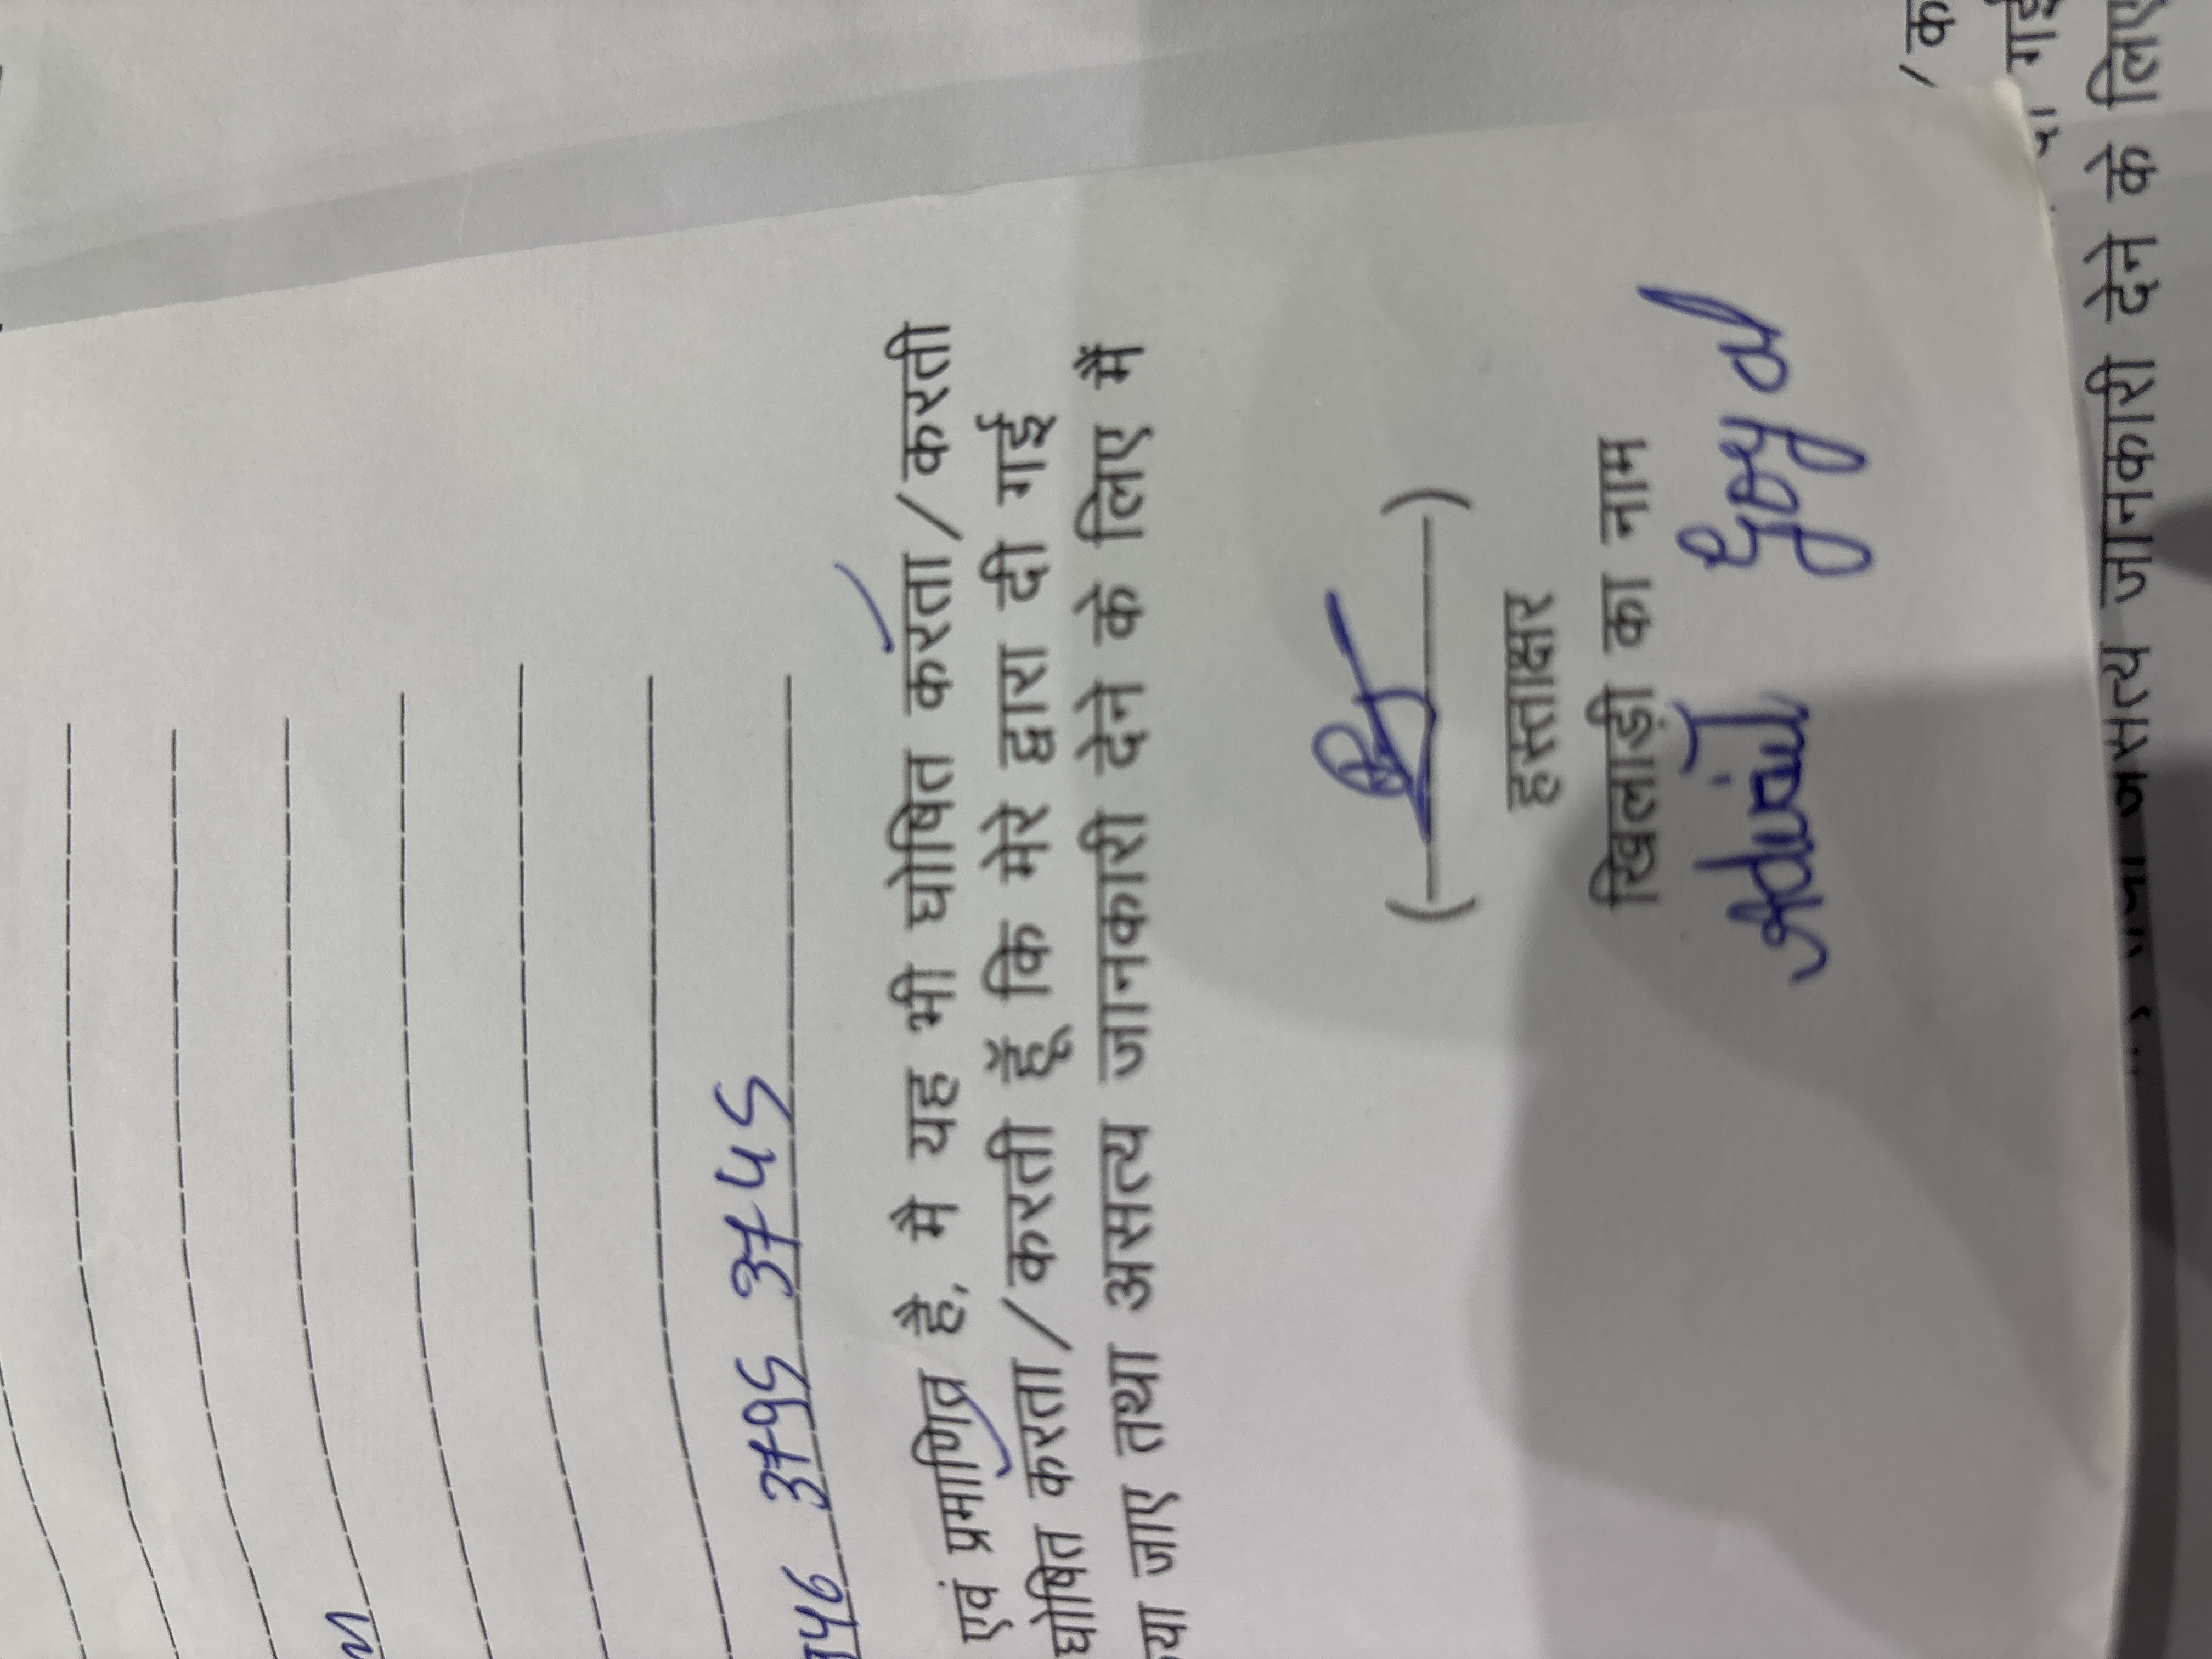 3795 3745
एवं प्रमाणित है, मै यह भी घोषित करता/करती
घोषित करता/करती हूँ कि मेरे द्वारा दी गई
या जाए तथा असत्य जानकारी देने के लिए मैं
(————)
हस्ताक्षर
खिलाड़ी का नाम
/ क
गई
असत्य जानकारी देने के लिए